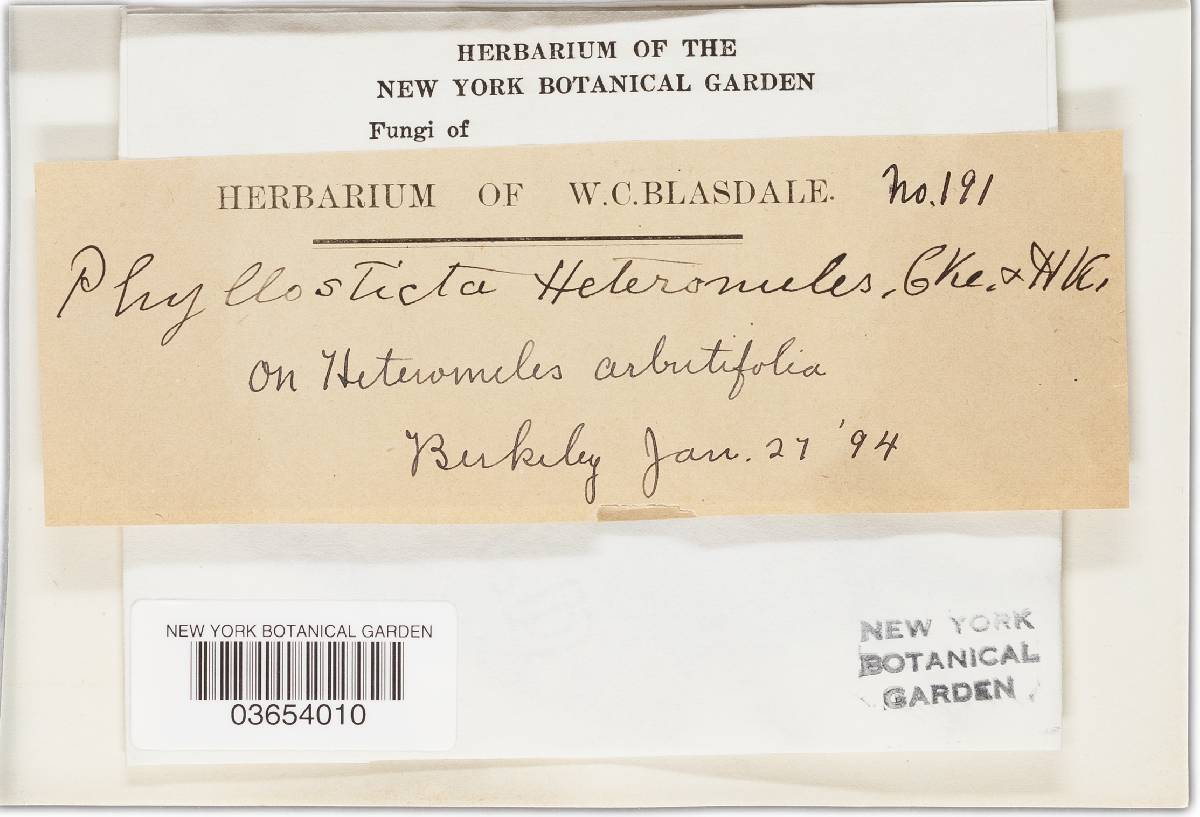 HERBARIUM OF THE
NEW YORK BOTANICAL GARDEN
Fungi of
HERBARIUM OF W.C.BLASDALE. No.191
Phyllosticta Heteromeles, Cke. & HK.
on Heteromeles arbutifolia
Berkeley Jan. 27 '94
NEW YORK BOTANICAL GARDEN
03654010
NEW YORK
BOTANICAL
GARDEN